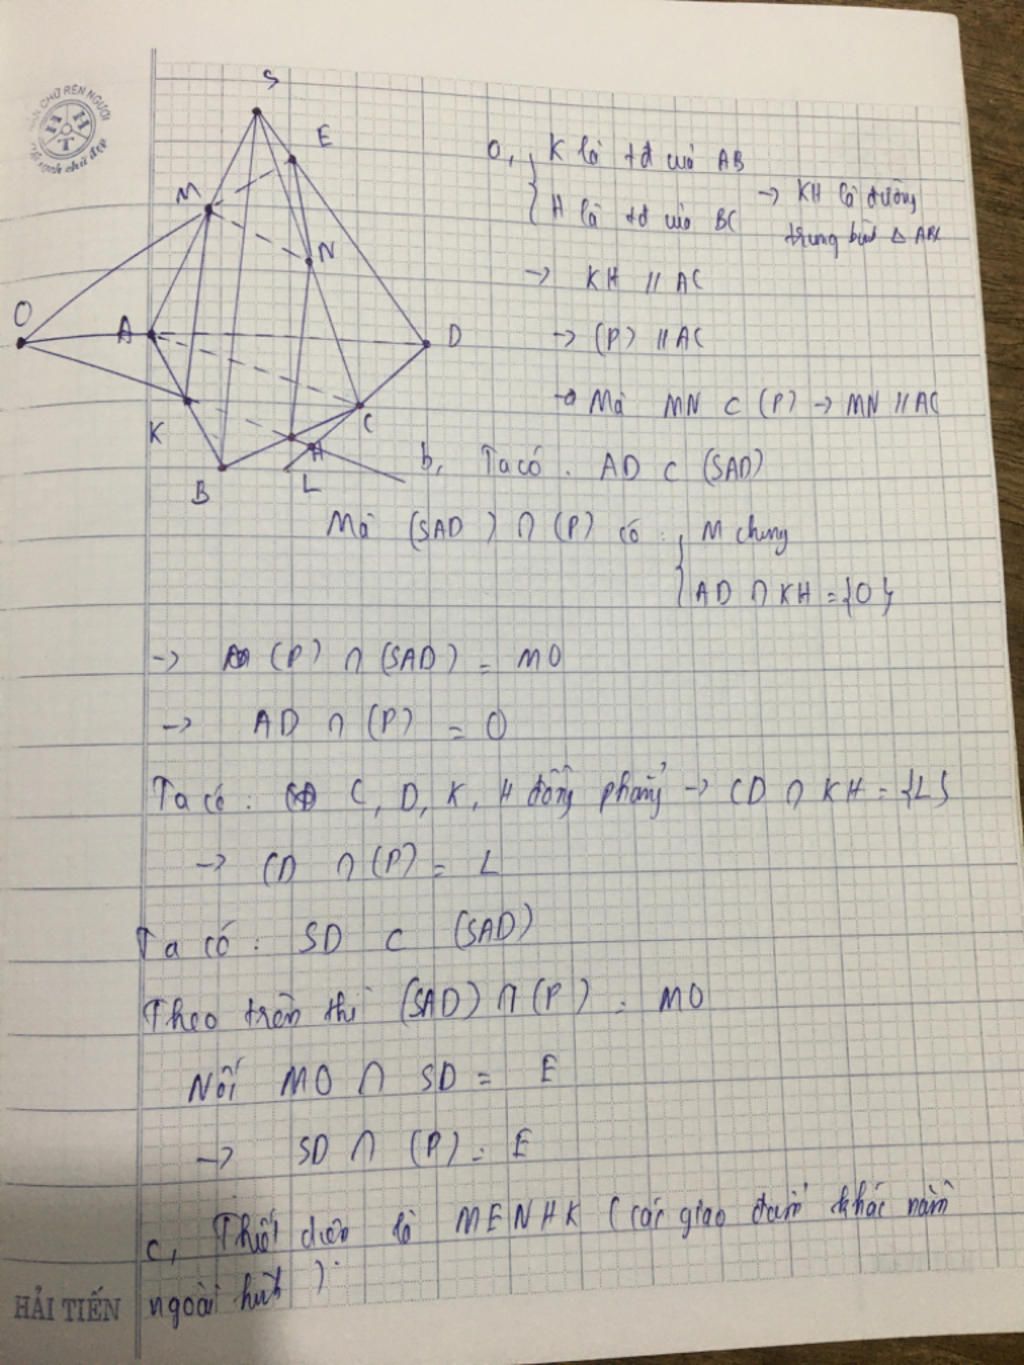 S
E
M
N
O
A
D
K
C
H
B
L
HẢI TIẾN
a, K là tđ của AB
H là tđ của BC
→ KH là đường
trung bình △ ABC
→ KH // AC
→ (P) // AC
→ Mà MN ⊂ (P) → MN // AC
b, Ta có . AD ⊂ (SAD)
Mà (SAD) ∩ (P) có : M chung
AD ∩ KH = {O}
→ (P) ∩ (SAD) = MO
→ AD ∩ (P) = O
Ta có : C, D, K, H đồng phẳng → CD ∩ KH = {L}
→ CD ∩ (P) = L
Ta có : SD ⊂ (SAD)
Theo trên thì (SAD) ∩ (P) = MO
Nối MO ∩ SD = E
→ SD ∩ (P) = E
c, Thiết diện là MENHK (các giao điểm khác nằm
ngoài hình)